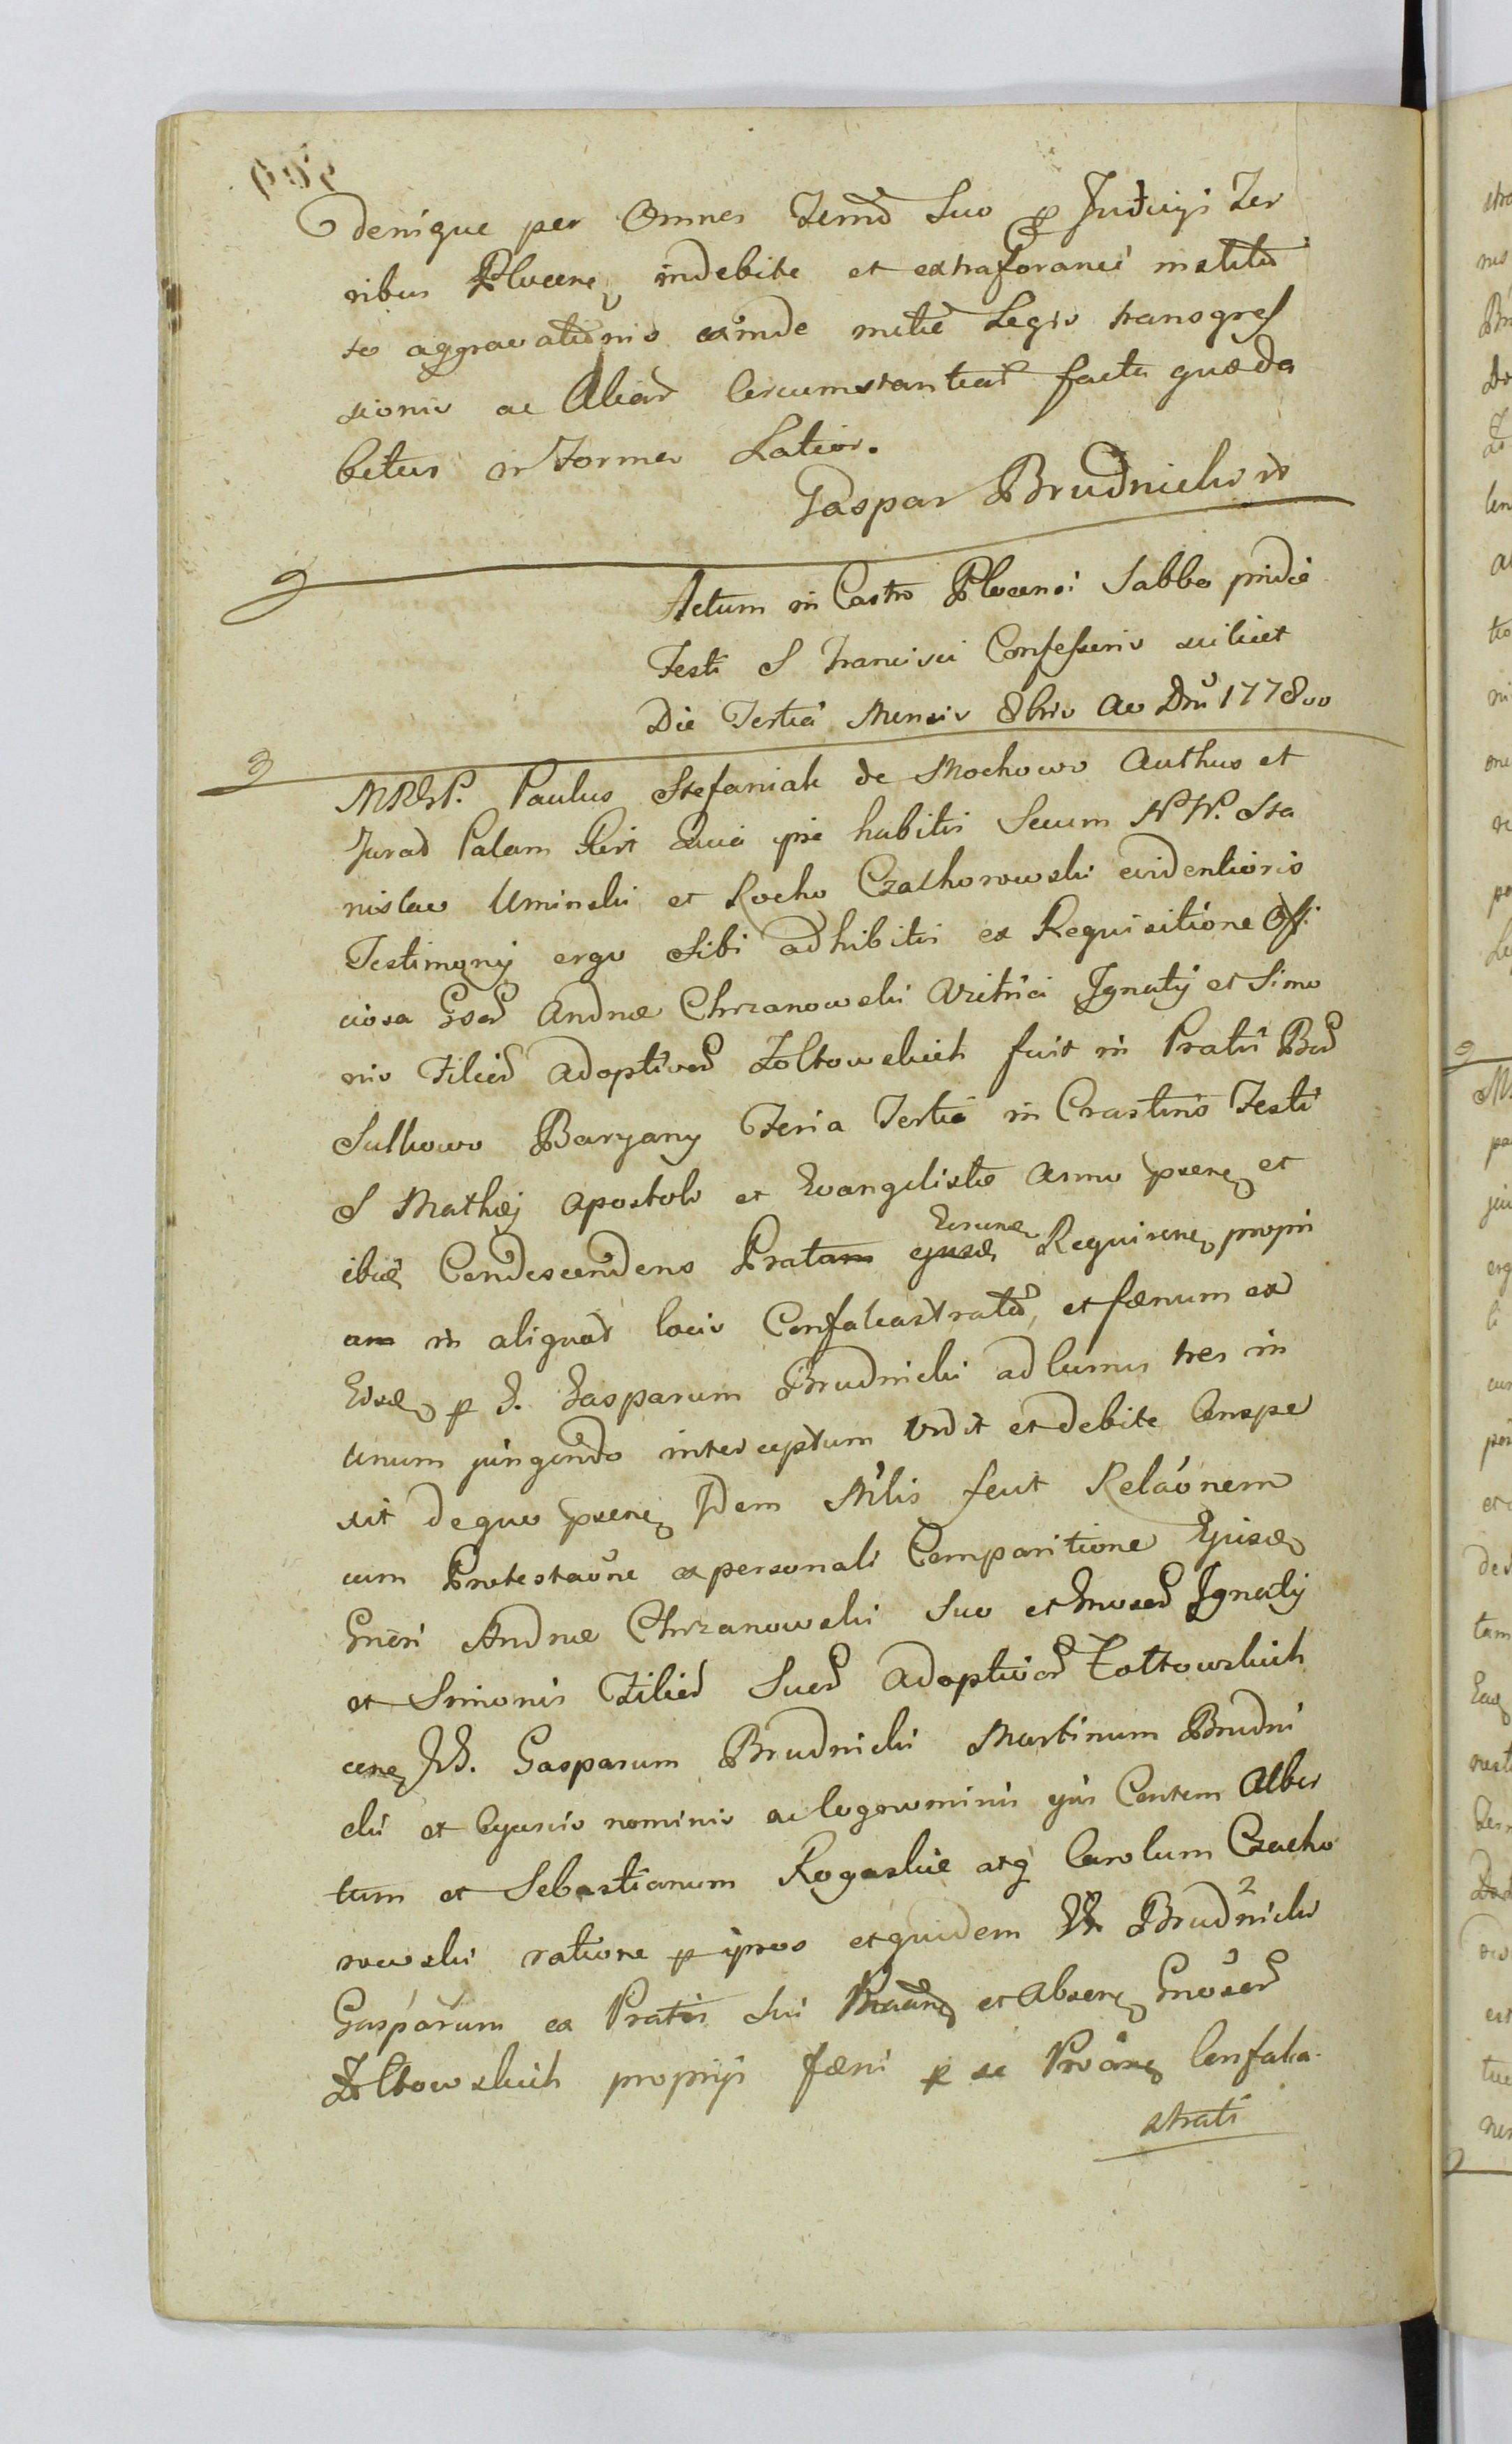 denique per Omnes Termd Suo p Judicijs Ter
ribus Plocens indebite et extraforanei institu
to aggravationis exinde mitie Legis transgres
sionis ac Aliad Circumstantiad facta quæ da
bitur in Forma Latior.
Gaspar Brudnicki
Actum in Castro Plocensi Sabbo pridie
Festi S Francisci Confessoris scilicet
Die Tertia Mensis 8bris Ao Dni 1778
Paulus Stefaniak de Mochowo Authus et
Jurad Palam Quia præ habitis Secum NN. Sta
nislao Uminski et Rocho Czachorowski evidentioris
Testimonij ergo Sibi adhibitis ex Requisitione Offi
ciosa Andræ Chrzanowski Vitrici Ignatij et Simo
nis Filiod Adoptivod Zoltowskich fuit in Pratis
Sulkowo Baryany Feria Tertia in Crastino Festi
S Mathæj Apostoli et Evangelistæ Anno præne et
ibidē Condescendens Pratam ejusd Earund Requirens propri
am in aliquot locis Confalcastratu, et fænum ex
Eisd p G. Gasparum Brudnicki ad cumus tres in
unum jungendo interceptum Vidit et debite Conspe
xit de quo præne Idem Mlis fecit Relaonem
cum Protestaone ex personali Comparitione Ejusd
Gnesi Andræ Chrzanowski Suo et Gnosod Ignatij
et Simonis Filiod Suod Adoptivod Zoltowskich
Gasparum Brudnicki Martinum Brudni
cki et Cujusvis nominis ac Cognominis ejus Contem Alber
tum et Sebastianum Rogaskie atq Carolum Czacho
rowski ratione p ipsos et quidem Brudnicki
Gasparum ex Pratis Sui et Absens Gnosod
Zoltowskich proprijs fæni p se Confalca
strati